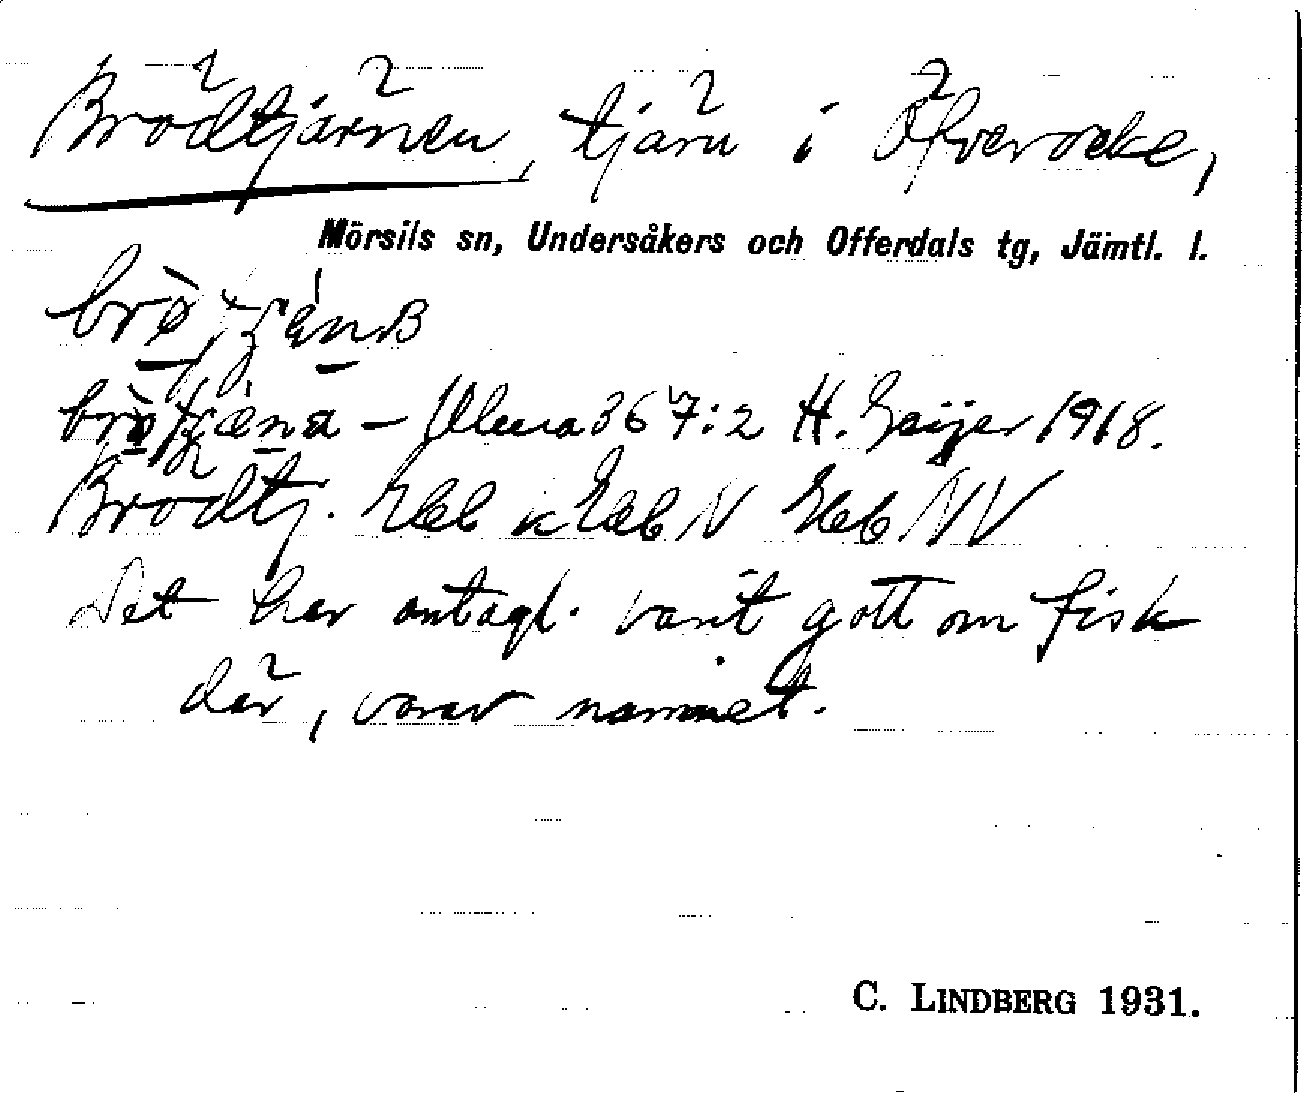 Brödtjärnen, tjärn i Öfverocke,
Mörsils sn, Undersåkers och Offerdals tg, Jämtl. l.
– Ulma 367:2 H. Geijer 1918.
Brödtj. Ekb k Ekb N Ekb NV
Det har antagl. varit gott om fisk
där, varav namnet.
C. LINDBERG 1931.